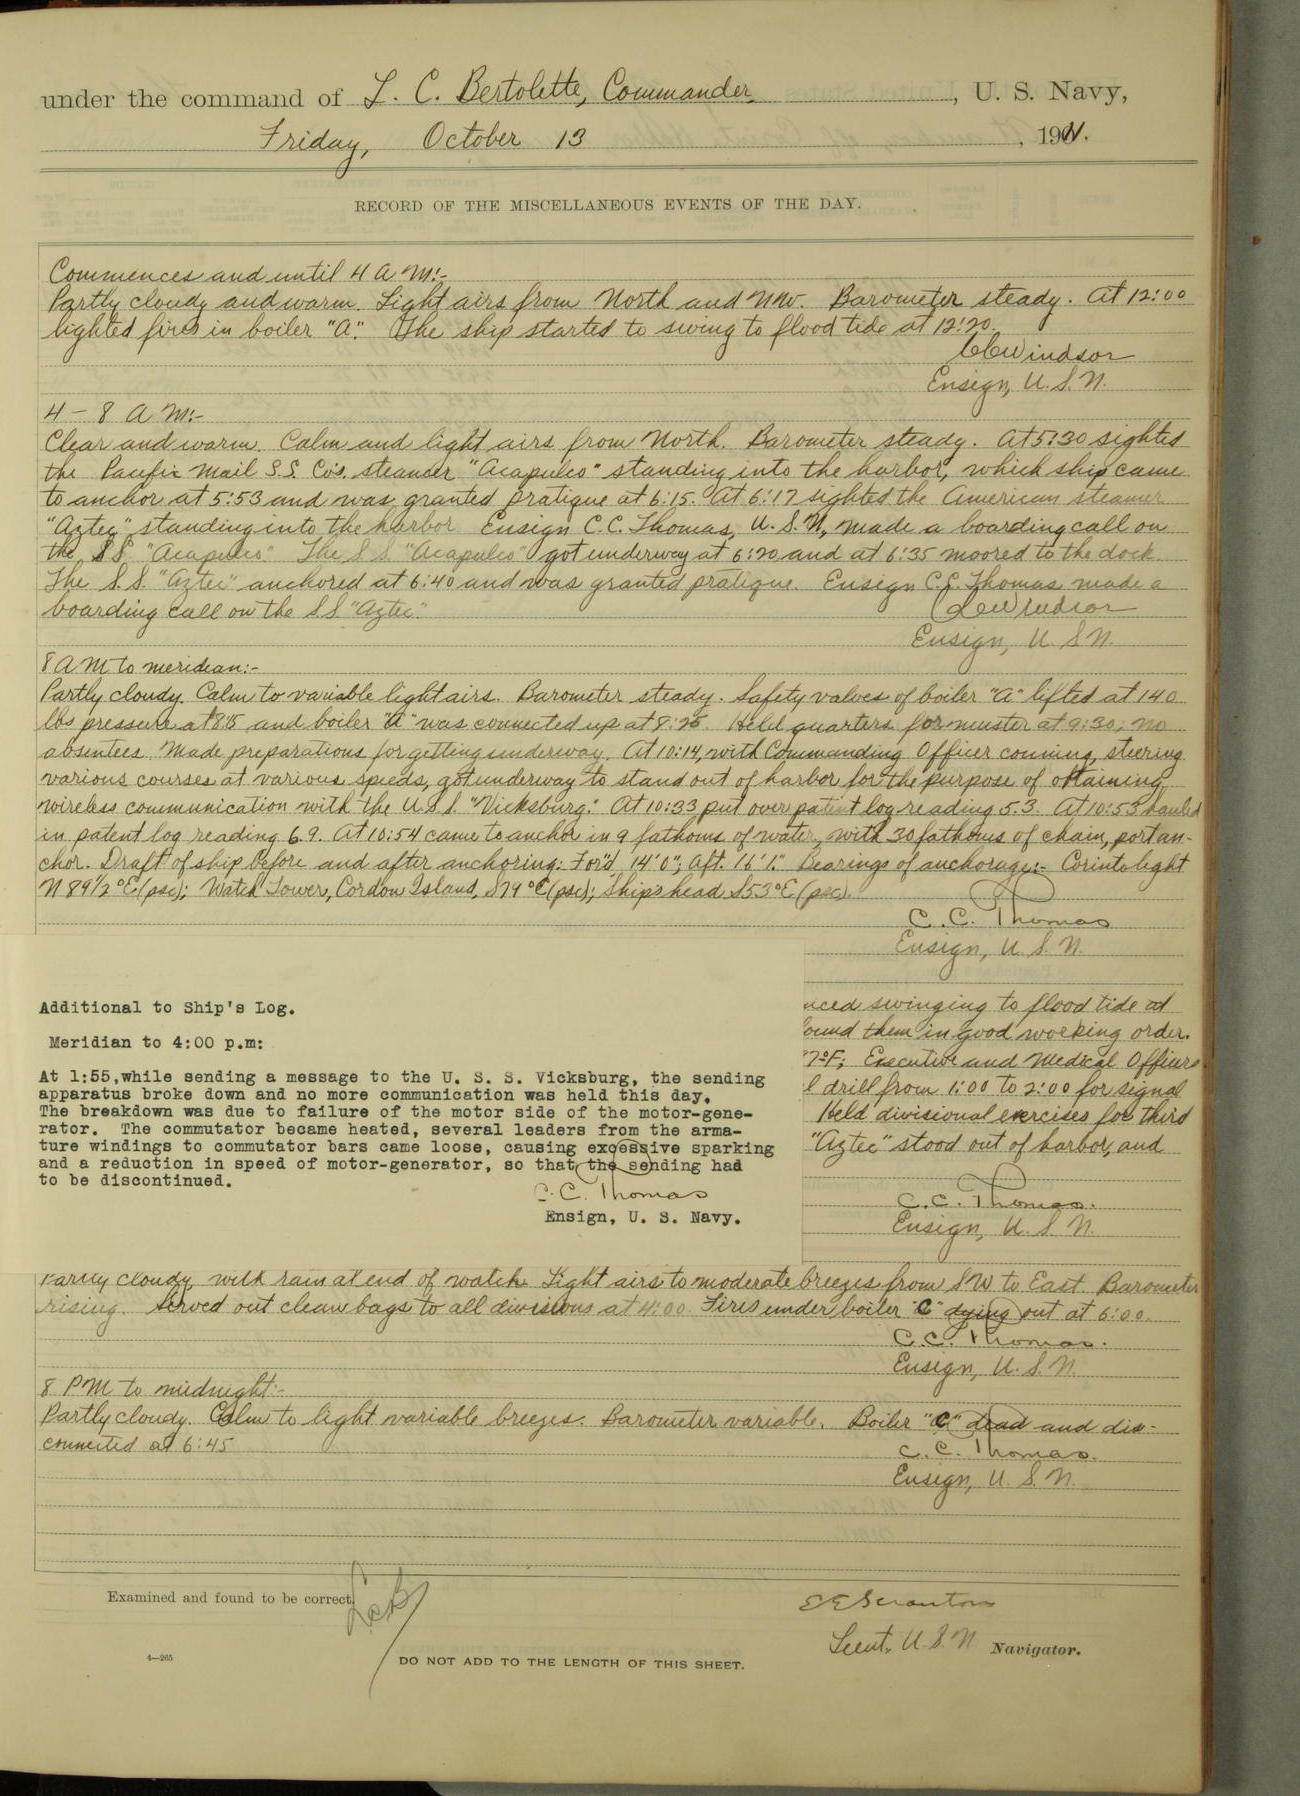 under the command of L. C. Bertolette, Commander, U. S. Navy,
Friday, October 13, 1911.
RECORD OF THE MISCELLANEOUS EVENTS OF THE DAY.
Commences and until 4 A M:-
Partly cloudy and warm. Light airs from North and NNW. Barometer steady. At 12:00
lighted fires in boiler "A". The ship started to swing to flood tide at 12:20.
Windsor
Ensign, U. S. N.
4 - 8 A M:-
Clear and warm. Calm and light airs from North. Barometer steady. At 5:30 sighted
the Pacific Mail S.S. Co's. steamer "Acapulco" standing into the harbor, which ship came
to anchor at 5:53 and was granted pratique at 6:15. At 6:17 sighted the American steamer
"Aztec" standing into the harbor Ensign C.C. Thomas, U. S. N, made a boarding call on
the S.S. "Acapulco" The S.S. "Acapulco" got underway at 6:20 and at 6:35 moored to the dock.
The S.S. "Aztec" anchored at 6:40 and was granted pratique. Ensign C.C. Thomas made a
boarding call on the S.S. "Aztec".
Windsor
Ensign, U. S N.
8 A M to meridian:-
Partly cloudy. Calm to variable light airs. Barometer steady. Safety valves of boiler "A" lifted at 140
lbs pressure at 8:15 and boiler "A" was connected up at 8:25. Held quarters for muster at 9:30; no
absentees. Made preparations for getting underway. At 10:14, with Commanding Officer conning, steering
various courses at various speeds, got underway to stand out of harbor for the purpose of obtaining
wireless communication with the U.S.S. "Vicksburg." At 10:33 put over patent log reading 5.3. At 10:53 hauled
in patent log reading 6.9. At 10:54 came to anchor in 9 fathoms of water, with 30 fathoms of chain, port an-
chor. Draft of ship before and after anchoring: For'd 14'0"; Aft. 16'1". Bearings of anchorage:- Corinto light
N 89 1/2 °E (psc); Watch Tower, Cordon Island, S 79 °E (psc); Ship's head S 53 °E (psc).
C. C. Thomas
Ensign, U. S. N.
Additional to Ship's Log.
Meridian to 4:00 p.m:
At 1:55,while sending a message to the U. S. S. Vicksburg, the sending
apparatus broke down and no more communication was held this day.
The breakdown was due to failure of the motor side of the motor-gene-
rator. The commutator became heated, several leaders from the arma-
ture windings to commutator bars came loose, causing excessive sparking
and a reduction in speed of motor-generator, so that the sending had
to be discontinued.
C. C. Thomas
Ensign, U. S. Navy.
nced swinging to flood tide at
ound them in good working order.
7°F; Executive and Medical Officers
l drill from 1:00 to 2:00 for signal
Held divisional exercises for third
"Aztec" stood out of harbor, and
C. C. Thomas.
Ensign, U. S. N.
Partly cloudy with rain at end of watch. Light airs to moderate breezes from SW to East. Barometer
rising. Served out clean bags to all divisions at 4:00. Fires under boiler "C" dying out at 6:00.
C. C. Thomas.
Ensign, U. S. N.
8 PM to midnight:-
Partly cloudy. Calm to light variable breezes. Barometer variable. Boiler "C" dead and dis-
connected at 6:45
C. C. Thomas.
Ensign, U. S. N.
Examined and found to be correct.
L.C.B.
E E Scranton
Lieut, U. S. N Navigator.
4—265
DO NOT ADD TO THE LENGTH OF THIS SHEET.